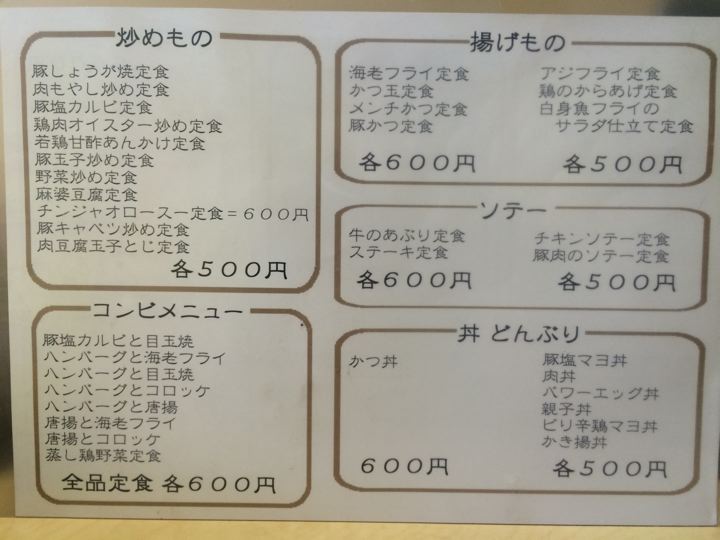 炒めもの
豚しょうが焼定食
肉もやし炒め定食
豚塩カルビ定食
鶏肉オイスター炒め定食
若鶏甘酢あんかけ定食
豚玉子炒め定食
野菜炒め定食
麻婆豆腐定食
チンジャオロースー定食＝６００円
豚キャベツ炒め定食
肉豆腐玉子とじ定食
各５００円
コンビメニュー
豚塩カルビと目玉焼
ハンバーグと海老フライ
ハンバーグと目玉焼
ハンバーグとコロッケ
ハンバーグと唐揚
唐揚と海老フライ
唐揚とコロッケ
蒸し鶏野菜定食
全品定食 各６００円
揚げもの
海老フライ定食
かつ玉定食
メンチかつ定食
豚かつ定食
各６００円
アジフライ定食
鶏のからあげ定食
白身魚フライの
サラダ仕立て定食
各５００円
ソテー
牛のあぶり定食
ステーキ定食
各６００円
チキンソテー定食
豚肉のソテー定食
各５００円
丼 どんぶり
かつ丼
６００円
豚塩マヨ丼
肉丼
パワーエッグ丼
親子丼
ピリ辛鶏マヨ丼
かき揚丼
各５００円